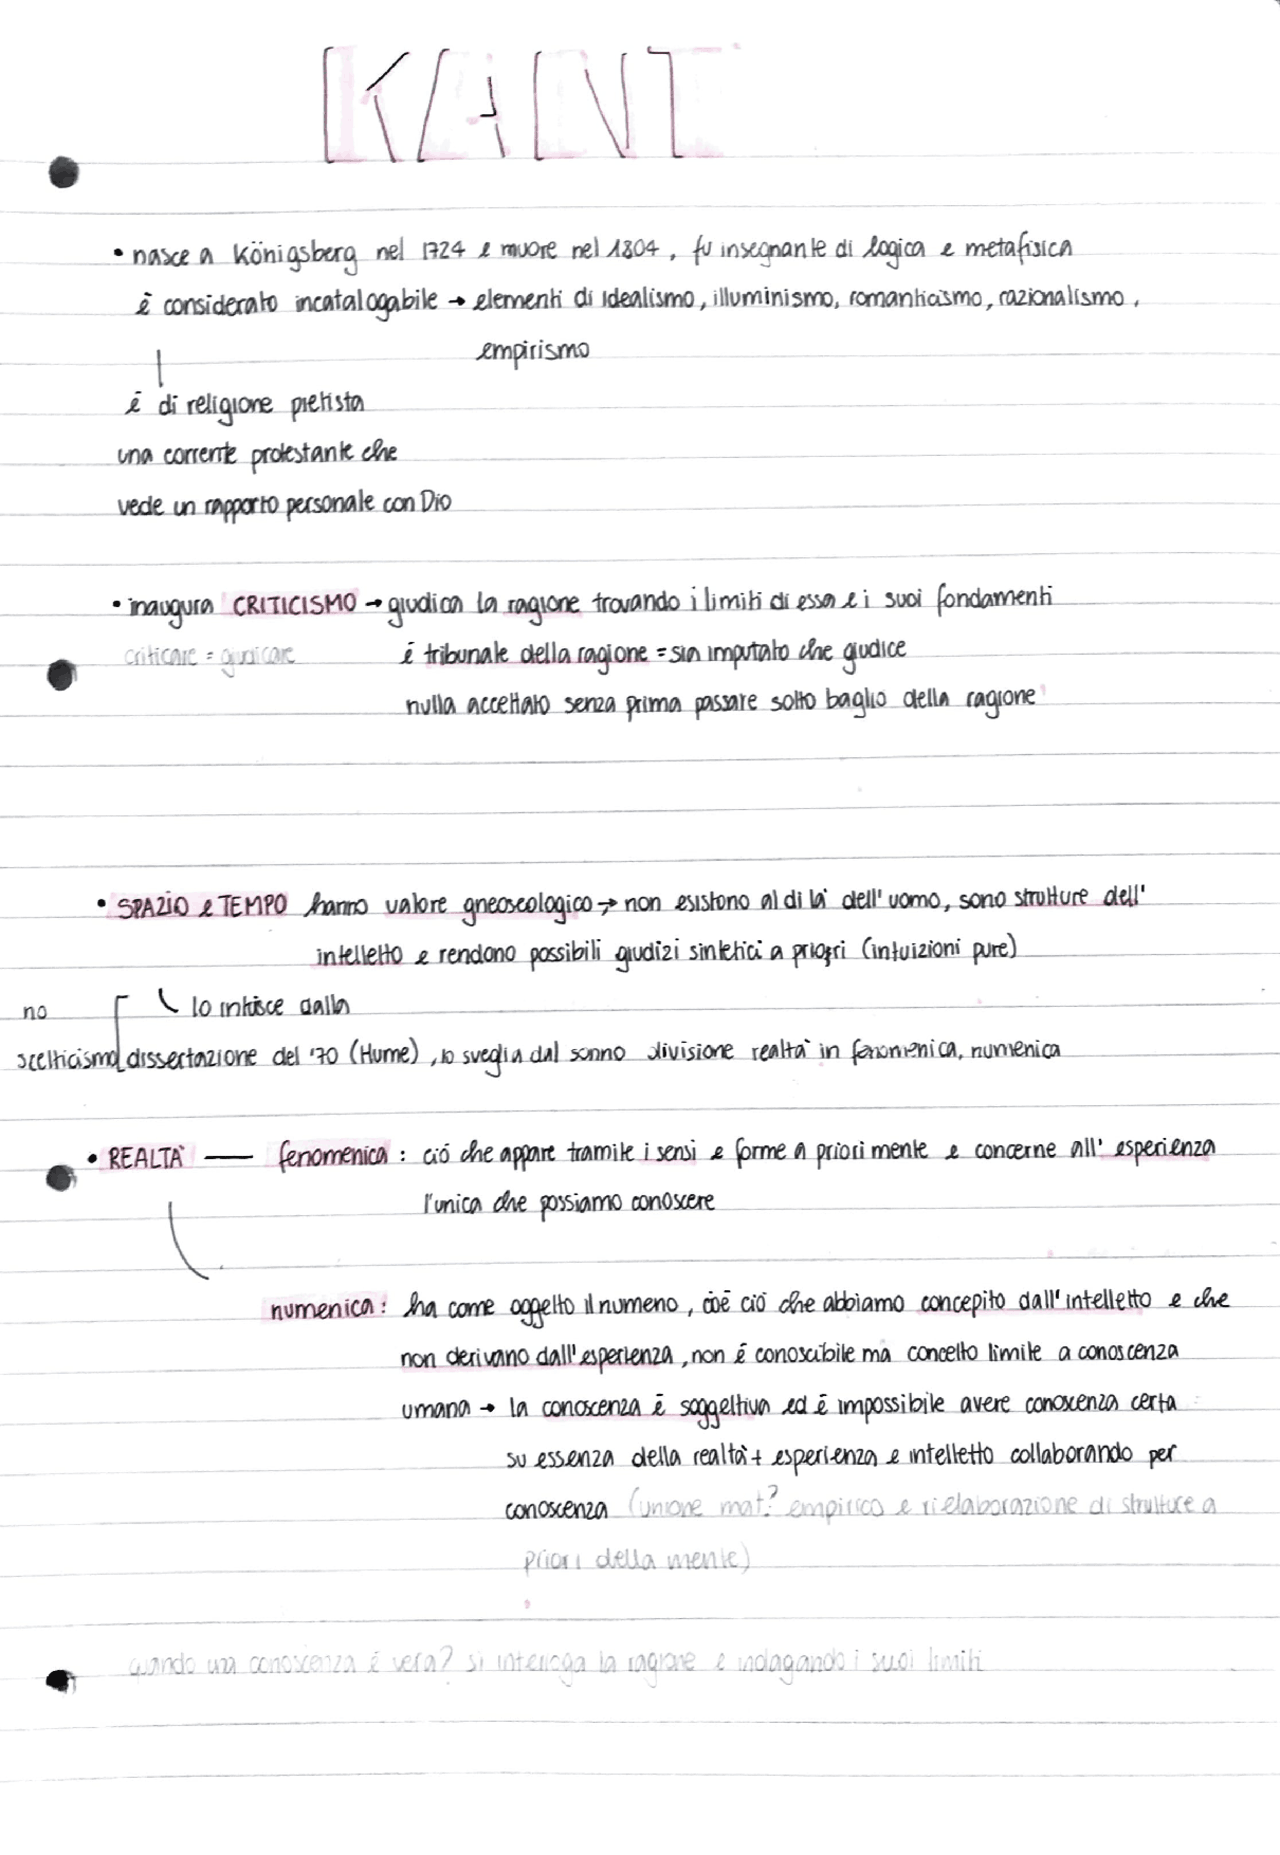 KANT
• nasce a Königsberg nel 1724 e muore nel 1804, fu insegnante di logica e metafisica
è considerato incatalogabile → elementi di idealismo, illuminismo, romanticismo, razionalismo,
empirismo
è di religione pietista
una corrente protestante che
vede un rapporto personale con Dio
• inaugura CRITICISMO → giudica la ragione trovando i limiti di essa e i suoi fondamenti
criticare = giudicare
è tribunale della ragione = sia imputato che giudice
nulla accettato senza prima passare sotto baglio della ragione
• SPAZIO e TEMPO hanno valore gneoseologico → non esistono al di là dell'uomo, sono strutture dell'
intelletto e rendono possibili giudizi sintetici a priori (intuizioni pure)
no
lo intuisce dalla
scetticismo dissertazione del '70 (Hume), lo sveglia dal sonno divisione realtà in fenomenica, numenica
• REALTÀ — fenomenica: ciò che appare tramite i sensi e forme a priori mente e concerne all'esperienza
l'unica che possiamo conoscere
numenica: ha come oggetto il numeno, cioè ciò che abbiamo concepito dall'intelletto e che
non derivano dall'esperienza, non è conoscibile ma concetto limite a conoscenza
umana → la conoscenza è soggettiva ed è impossibile avere conoscenza certa
su essenza della realtà + esperienza e intelletto collaborando per
conoscenza (unione mat? empirico e rielaborazione di strutture a
priori della mente)
quando una conoscenza è vera? si interroga la ragione e indagando i suoi limiti